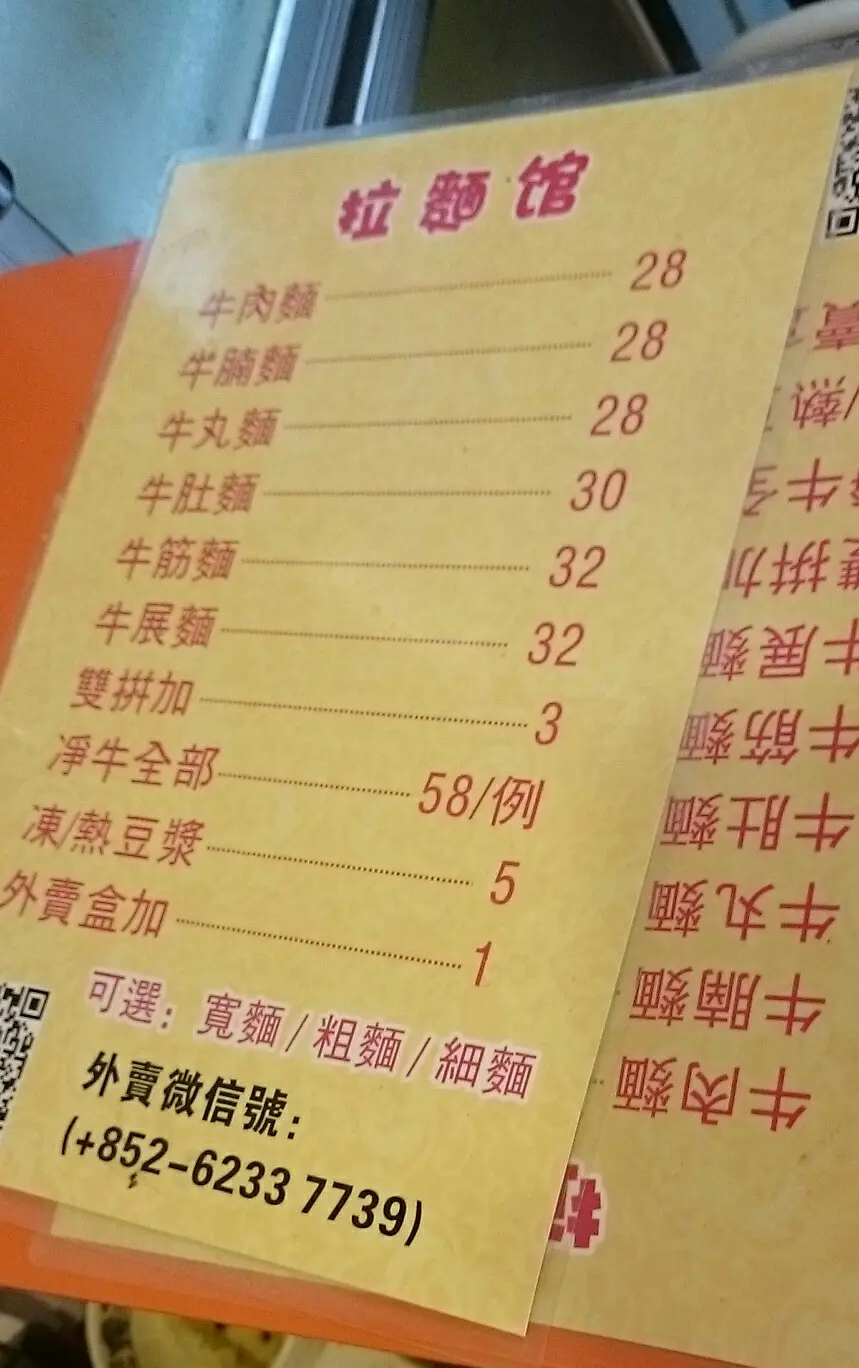 拉麵馆
牛肉麵 28
牛腩麵 28
牛丸麵 28
牛肚麵 30
牛筋麵 32
牛展麵 32
雙拼加 3
凈牛全部 58/例
凍/熱豆漿 5
外賣盒加 1
可選：寬麵/粗麵/細麵
外賣微信號：
(+852-6233 7739)
牛肉麵
牛腩麵
牛丸麵
牛肚麵
牛筋麵
牛展麵
拼加
牛全
/熱
賣